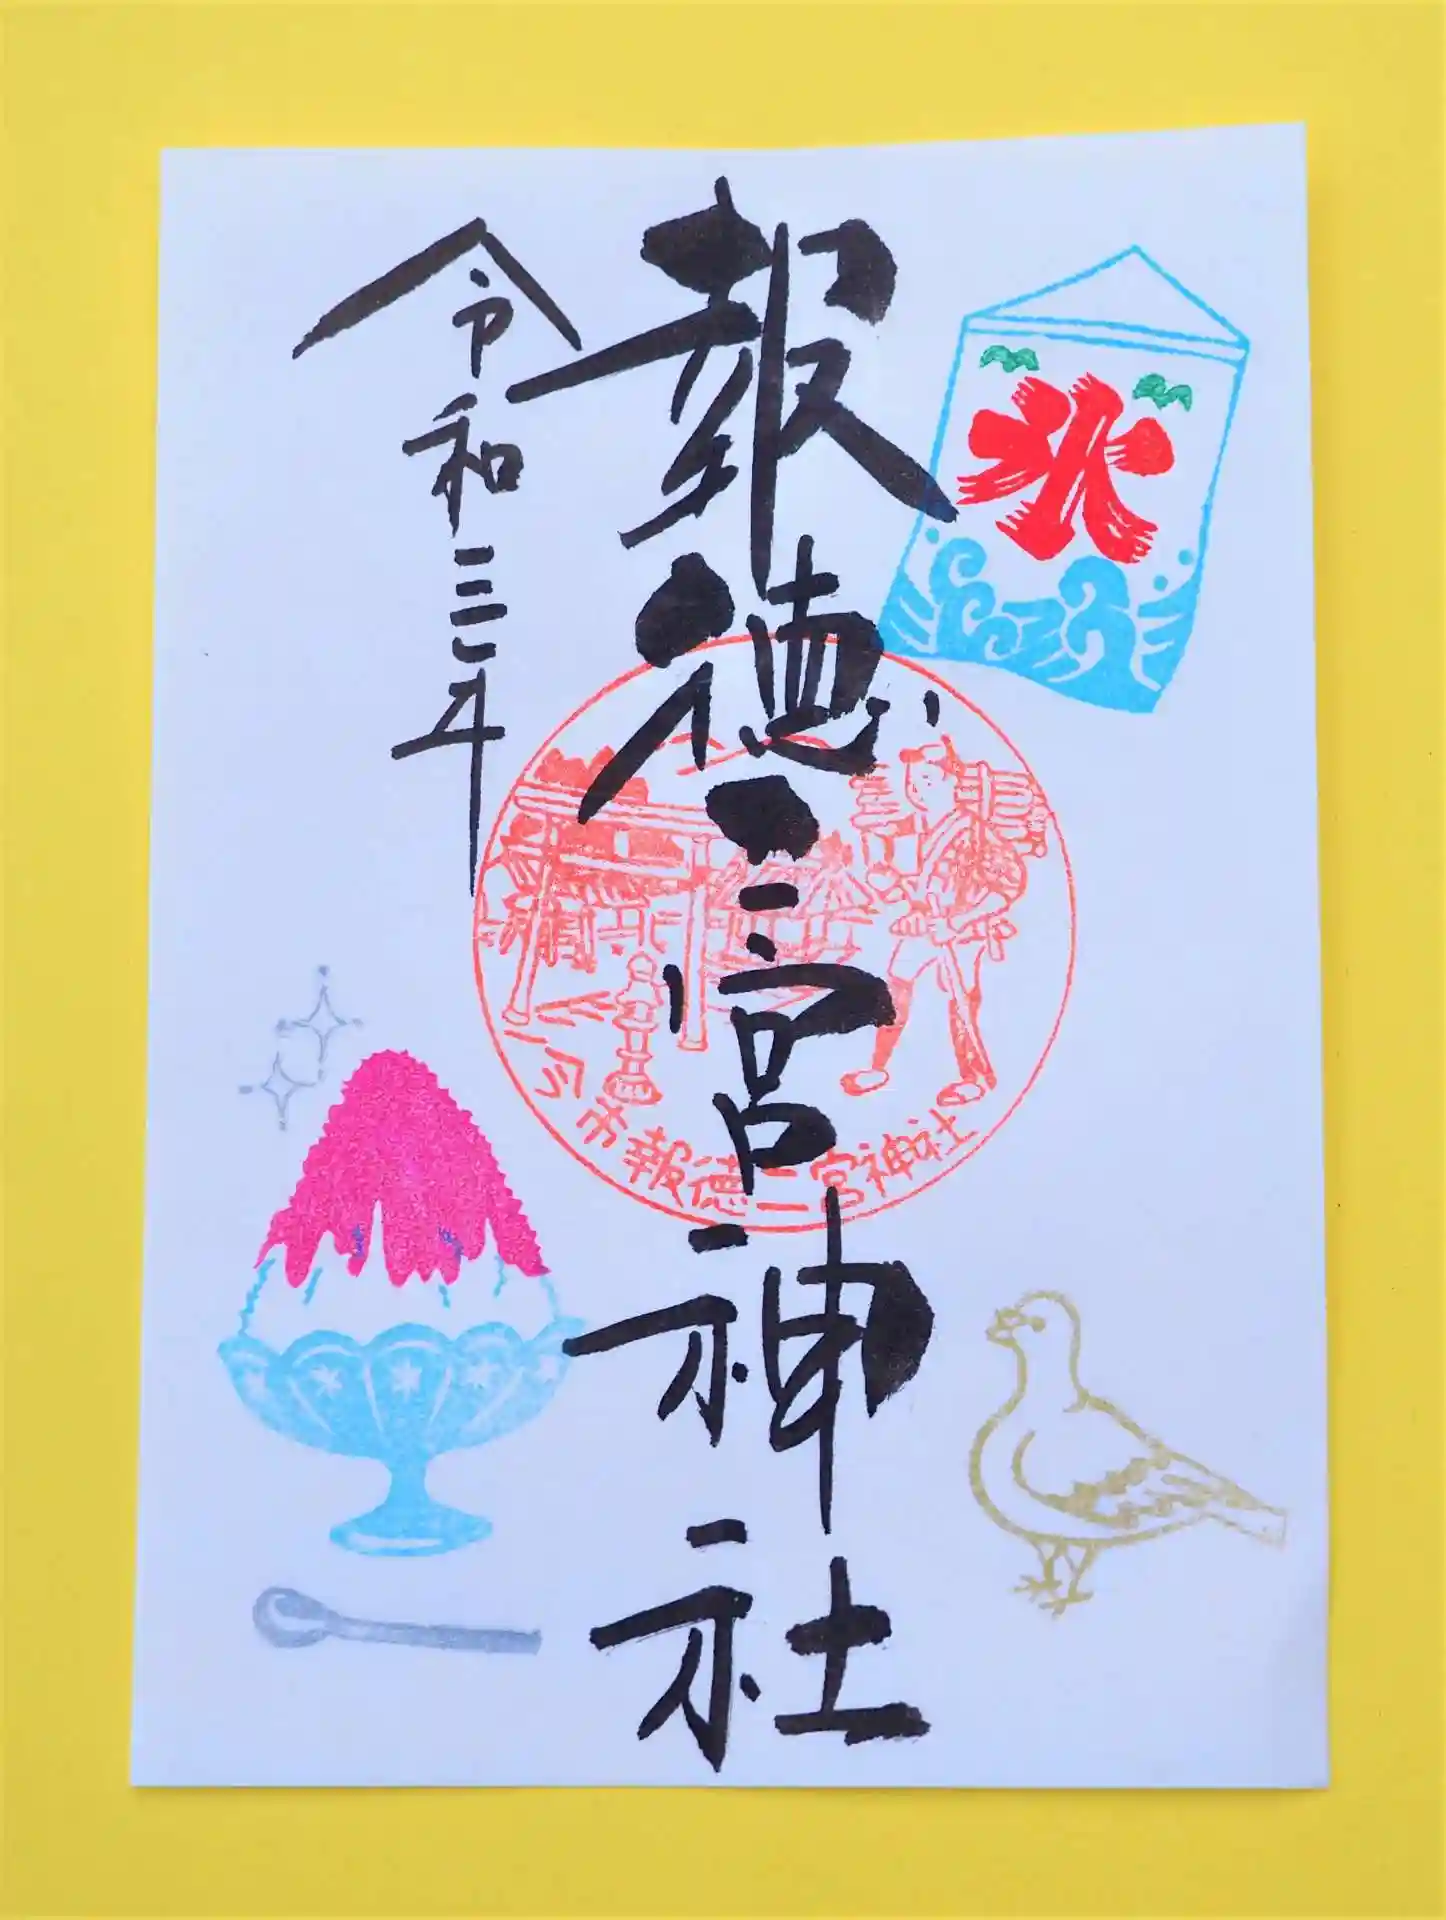 氷
報徳二宮神社
令和三年
今市報徳二宮神社